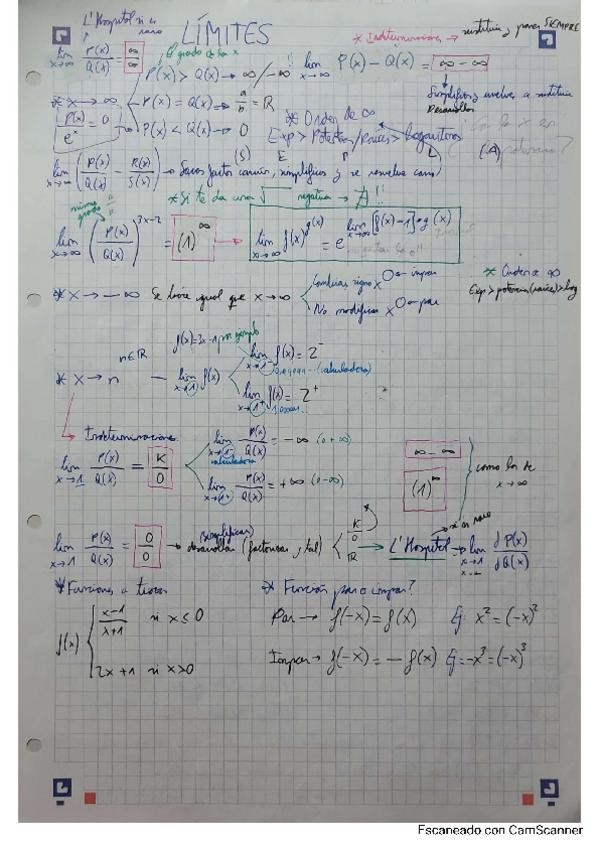 L'Hospital si es raro
LÍMITES
* Indeterminaciones → sustituir y poner SIEMPRE
lim x→∞ P(x)/Q(x) = ∞/∞
El grado de la x
P(x) > Q(x) → ∞/-∞
!! lim x→∞ P(x) - Q(x) = ∞ - ∞
Simplificas y vuelves a sustituir
Desarrollar
* x → ∞
P(x) = Q(x) → a/b = R
P(x)/e^x = 0
P(x) < Q(x) → 0
* Orden de ∞
Exp > Potencias/raíces > Logaritmos
lim x→∞ (P(x)/Q(x) - R(x)/S(x)) → Sacas factor común, simplificas y se resuelve
* Si te da una √ negativa → ∄ !!
mismo grado a/b
lim x→∞ (P(x)/Q(x))^3x-2 = (1)^∞ → lim x→∞ f(x)^g(x) = e^lim x→∞ [f(x)-1]·g(x)
* Orden de ∞
Exp > potencias (raíces) > log
* x → -∞ Se hace igual que x→∞
Cambias signo x^ impar
No modificas x^ par
n∈R
f(x)=3x-1 por ejemplo
* x → n — lim x→1 f(x)
lim x→1⁻ f(x) = 2⁻
(calculadora)
lim x→1⁺ f(x) = 2⁺
Indeterminaciones
lim x→1 P(x)/Q(x) = K/0
lim x→1⁻ P(x)/Q(x) = -∞ (o +∞)
calculadora
lim x→1⁺ P(x)/Q(x) = +∞ (o -∞)
∞ - ∞
(1)^∞
como los de x→∞
lim x→1 P(x)/Q(x) = 0/0 → desarrollar (factorizar, tal)
(simplificar)
K/0
R
→ L'Hospital → lim x→1 dP(x)/dQ(x)
si es raro
* Funciones a trozos
* Función par o impar?
f(x) { x-1/x+1 si x ≤ 0
2x+1 si x>0
Par → f(-x) = f(x) Ej: x² = (-x)²
Impar → f(-x) = -f(x) Ej: -x³ = (-x)³
Escaneado con CamScanner